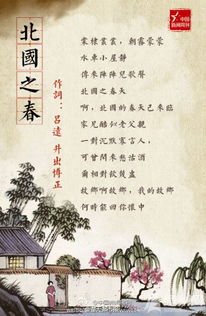 北國之春
作詞：呂遠 井出博正
棠棣叢叢，朝霧蒙蒙
水車小屋靜
傳來陣陣兒歌聲
北國之春天
啊，北國的春天已來臨
家兄酷似老父親
一對沉默寡言人
可曾閑來愁沽酒
偶相對飲幾盅
故鄉啊故鄉，我的故鄉
何時能回你懷中
中國
新聞周刊
@中國新聞周刊